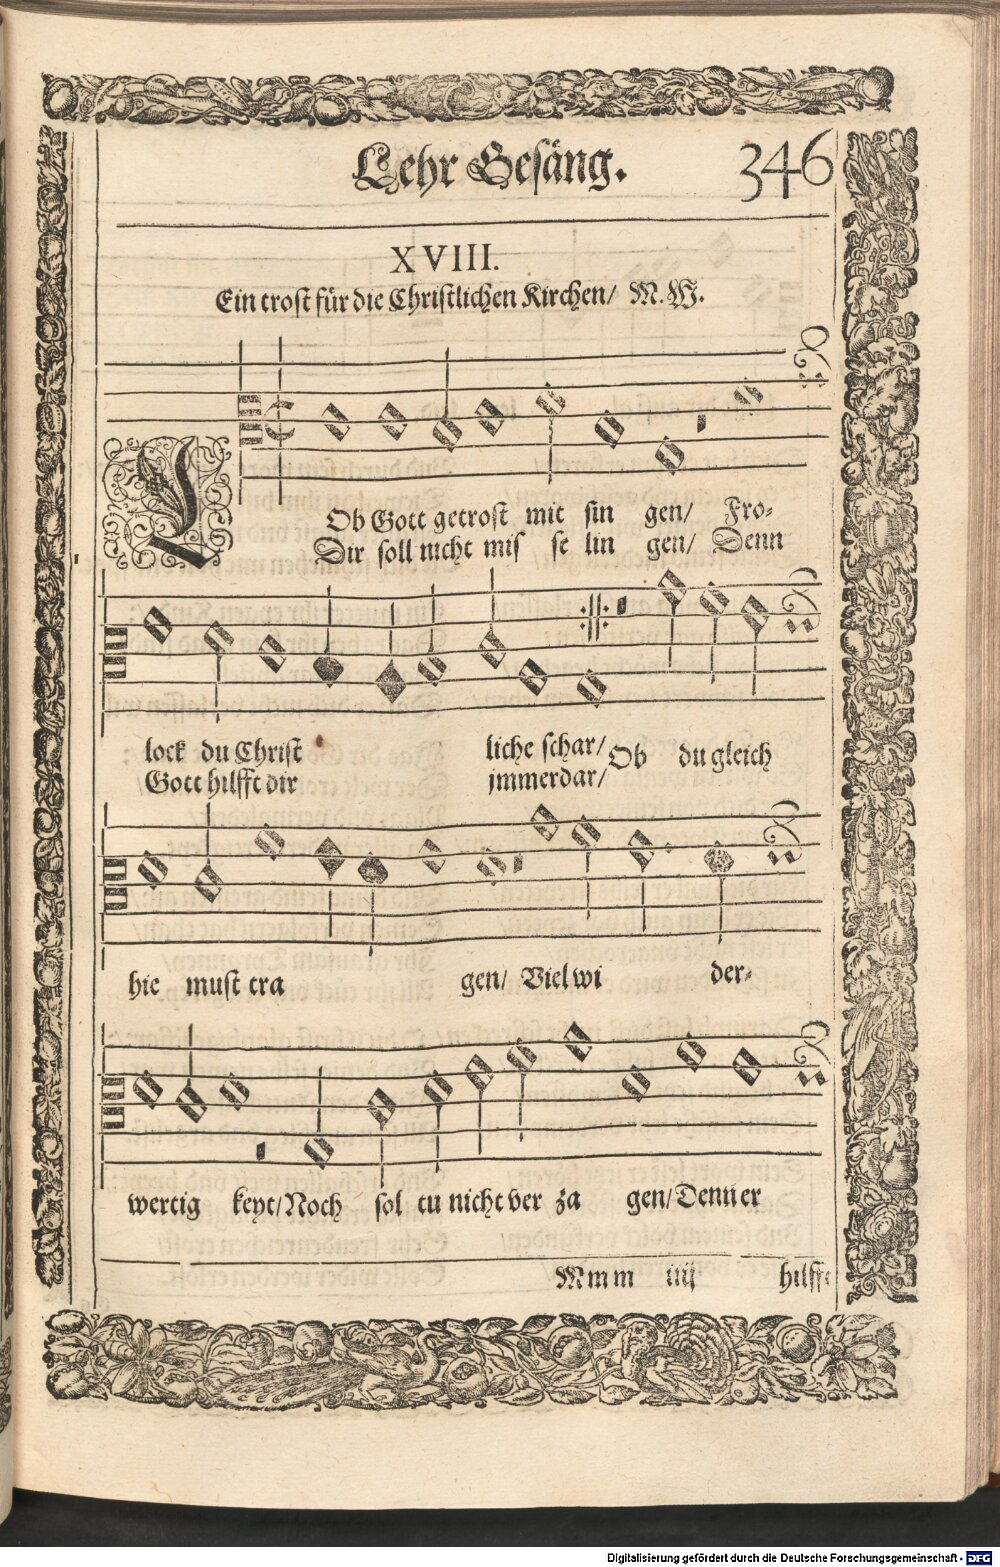 Lehr Gesäng. 346
XVIII.
Ein trost für die Christlichen Kirchen/ M. W.
LOb Gott getrost mit sin gen/ Fro-
Dir soll nicht mis se lin gen/ Denn
lock du Christ liche schar/ Ob du gleich
Gott hilfft dir jmmerdar/
hie must tra gen/ Viel wi der-
wertig keyt/ Noch sol tu nicht ver za gen/ Denn er
Mmm iiij hilfft
Digitalisierung gefördert durch die Deutsche Forschungsgemeinschaft - DFG